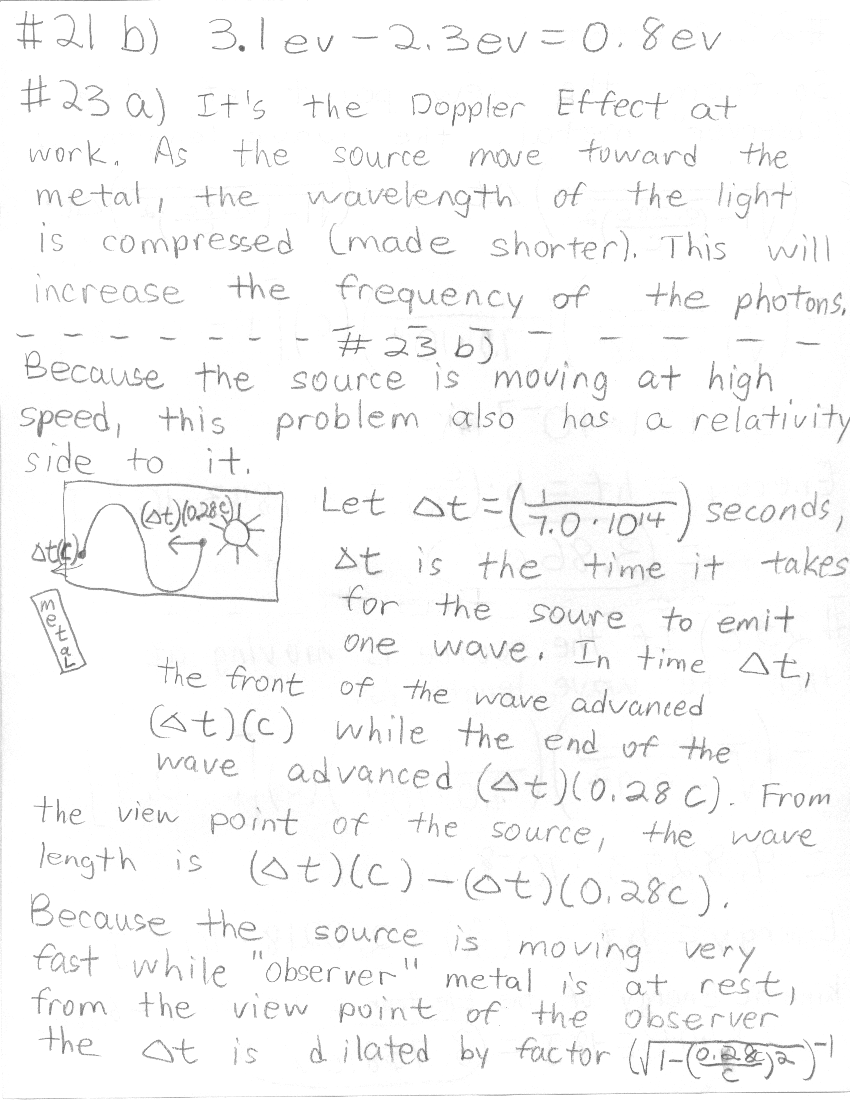 #21 b) 3.1ev - 2.3ev = 0.8ev
#23 a) It's the Doppler Effect at
work. As the source move toward the
metal, the wavelength of the light
is compressed (made shorter). This will
increase the frequency of the photons.
#23 b)
Because the source is moving at high
speed, this problem also has a relativity
side to it.
(Δt)(0.28c)
Δt(c)
metal
Let Δt = (1/7.0·10^14) seconds,
Δt is the time it takes
for the soure to emit
one wave. In time Δt,
the front of the wave advanced
(Δt)(c) while the end of the
wave advanced (Δt)(0.28c). From
the view point of the source, the wave
length is (Δt)(c) - (Δt)(0.28c).
Because the source is moving very
fast while "observer" metal is at rest,
from the view point of the observer
the Δt is dilated by factor (√(1-(0.28c/c)^2))^-1